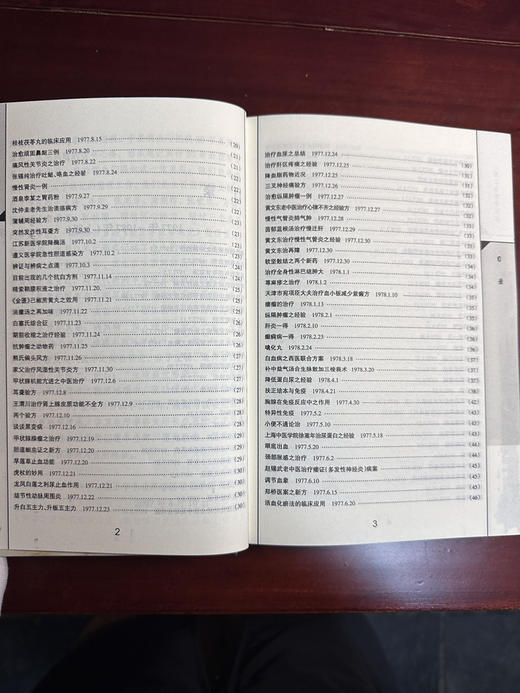 桂枝茯苓丸的临床应用 1977.8.15 (20)
治愈顽固鼻衄三例 1977.8.20 (21)
痛风性关节炎之治疗 1977.8.22 (21)
张锡纯治疗吐衄、咯血之经验 1977.8.24 (21)
慢性肾炎一例 (21)
酒皂李某之胃药粉 1977.9.27 (22)
沈仲圭老先生治溃疡病方 1977.9.29 (22)
蒲辅周经验方 1977.9.30 (22)
突然发作性耳聋方 1977.9.30 (22)
《江苏新医学院降酶汤 1977.10.2 (23)
遵义医学院急性胆道感染方 1977.10.2 (23)
辨证与辨病之点滴 1977.10.2 (23)
目前出现的几个抗白方剂 1977.11.14
精索鞘膜积液之治疗 1977.11.20
《金匮》己椒苈黄丸之效用 1977.11.21 (25)
消瘰汤之再加味 1977.11.22 (25)
白塞氏综合征 1977.11.23 (25)
期前收缩之治疗经验 1977.11.24 (26)
抗肿瘤之动物药 1977.11.25 (26)
熊氏偏头风方 1977.11.26 (27)
家父治疗风湿性关节炎方 1977.11.30 (27)
甲状腺机能亢进之中医治疗 1977.12.6 (27)
耳聋验方 1977.12.8 (28)
王渭川治疗肾上腺皮质功能不全方 1977.12.9 (28)
两个验方 1977.12.10 (28)
谈谈黑变病 1977.12.16 (28)
甲状腺瘤之治疗 1977.12.19 (29)
胆道蛔虫证之新方 1977.12.20 (29)
旱莲草止血功能 1977.12.20 (29)
虎杖的妙用 1977.12.21 (29)
龙凤白莲之利尿止血作用 1977.12.21 (30)
结节性动脉周围炎 1977.12.22 (30)
升白五主力、升板五主力 1977.12.23 (30)
2
治疗血尿之总结 1977.12.24 (30)
治疗肝区疼痛之经验 1977.12.25 (31)
降血脂药物近况 1977.12.25 (31)
三叉神经痛验方 1977.12.26 (31)
治愈纵隔肿瘤一例 1977.12.27 (31)
黄文东老中医治疗心律不齐之经验方 1977.12.27 (32)
慢性气管炎肺气肿 1977.12.27 (32)
茵郁蓝板汤治疗慢迁肝 1977.12.31 (32)
黄文东治疗慢性气管炎方 1977.12.31 (32)
黄文东治再障 1977.12.31 (33)
软坚散结之两个新药 1977.12.31 (33)
治疗全身性淋巴结肿大 1978.1.1 (33)
荨麻疹之治疗 1978.1.2 (34)
天津市宛项臣大夫治疗血小板减少紫癜方 1978.1.10 (34)
瘿瘤的治疗 1978.1.13 (34)
纵隔肿瘤之经验 1978.2.8 (35)
肝炎一得 1978.2.10 (35)
癫痫病一得 1978.2.23 (36)
噙化丸 1978.2.24 (36)
白血病之西医联合方案 1978.3.18 (37)
补中益气汤合生脉散加三棱莪术 1978.3.20 (37)
降低蛋白尿之经验 1978.4.1 (37)
扶正培本与免疫 1978.4.10 (38)
胸腺在免疫反应中之作用 1978.4.20 (42)
特异性免疫 1978.5.1 (43)
小便不通论治 1978.5.10 (43)
上海中医学院徐嵩年治尿蛋白之经验 1977.5.18 (44)
眼底出血 1977.5.20 (44)
颈部胀感之治疗 1977.6.2 (44)
赵锡武老中医治疗痿证(多发性神经炎)病案 (45)
调节血象 1977.6.10 (45)
郑桥医案之新方 1977.6.10 (45)
活血化瘀法的临床应用 1977.6.20 (46)
3